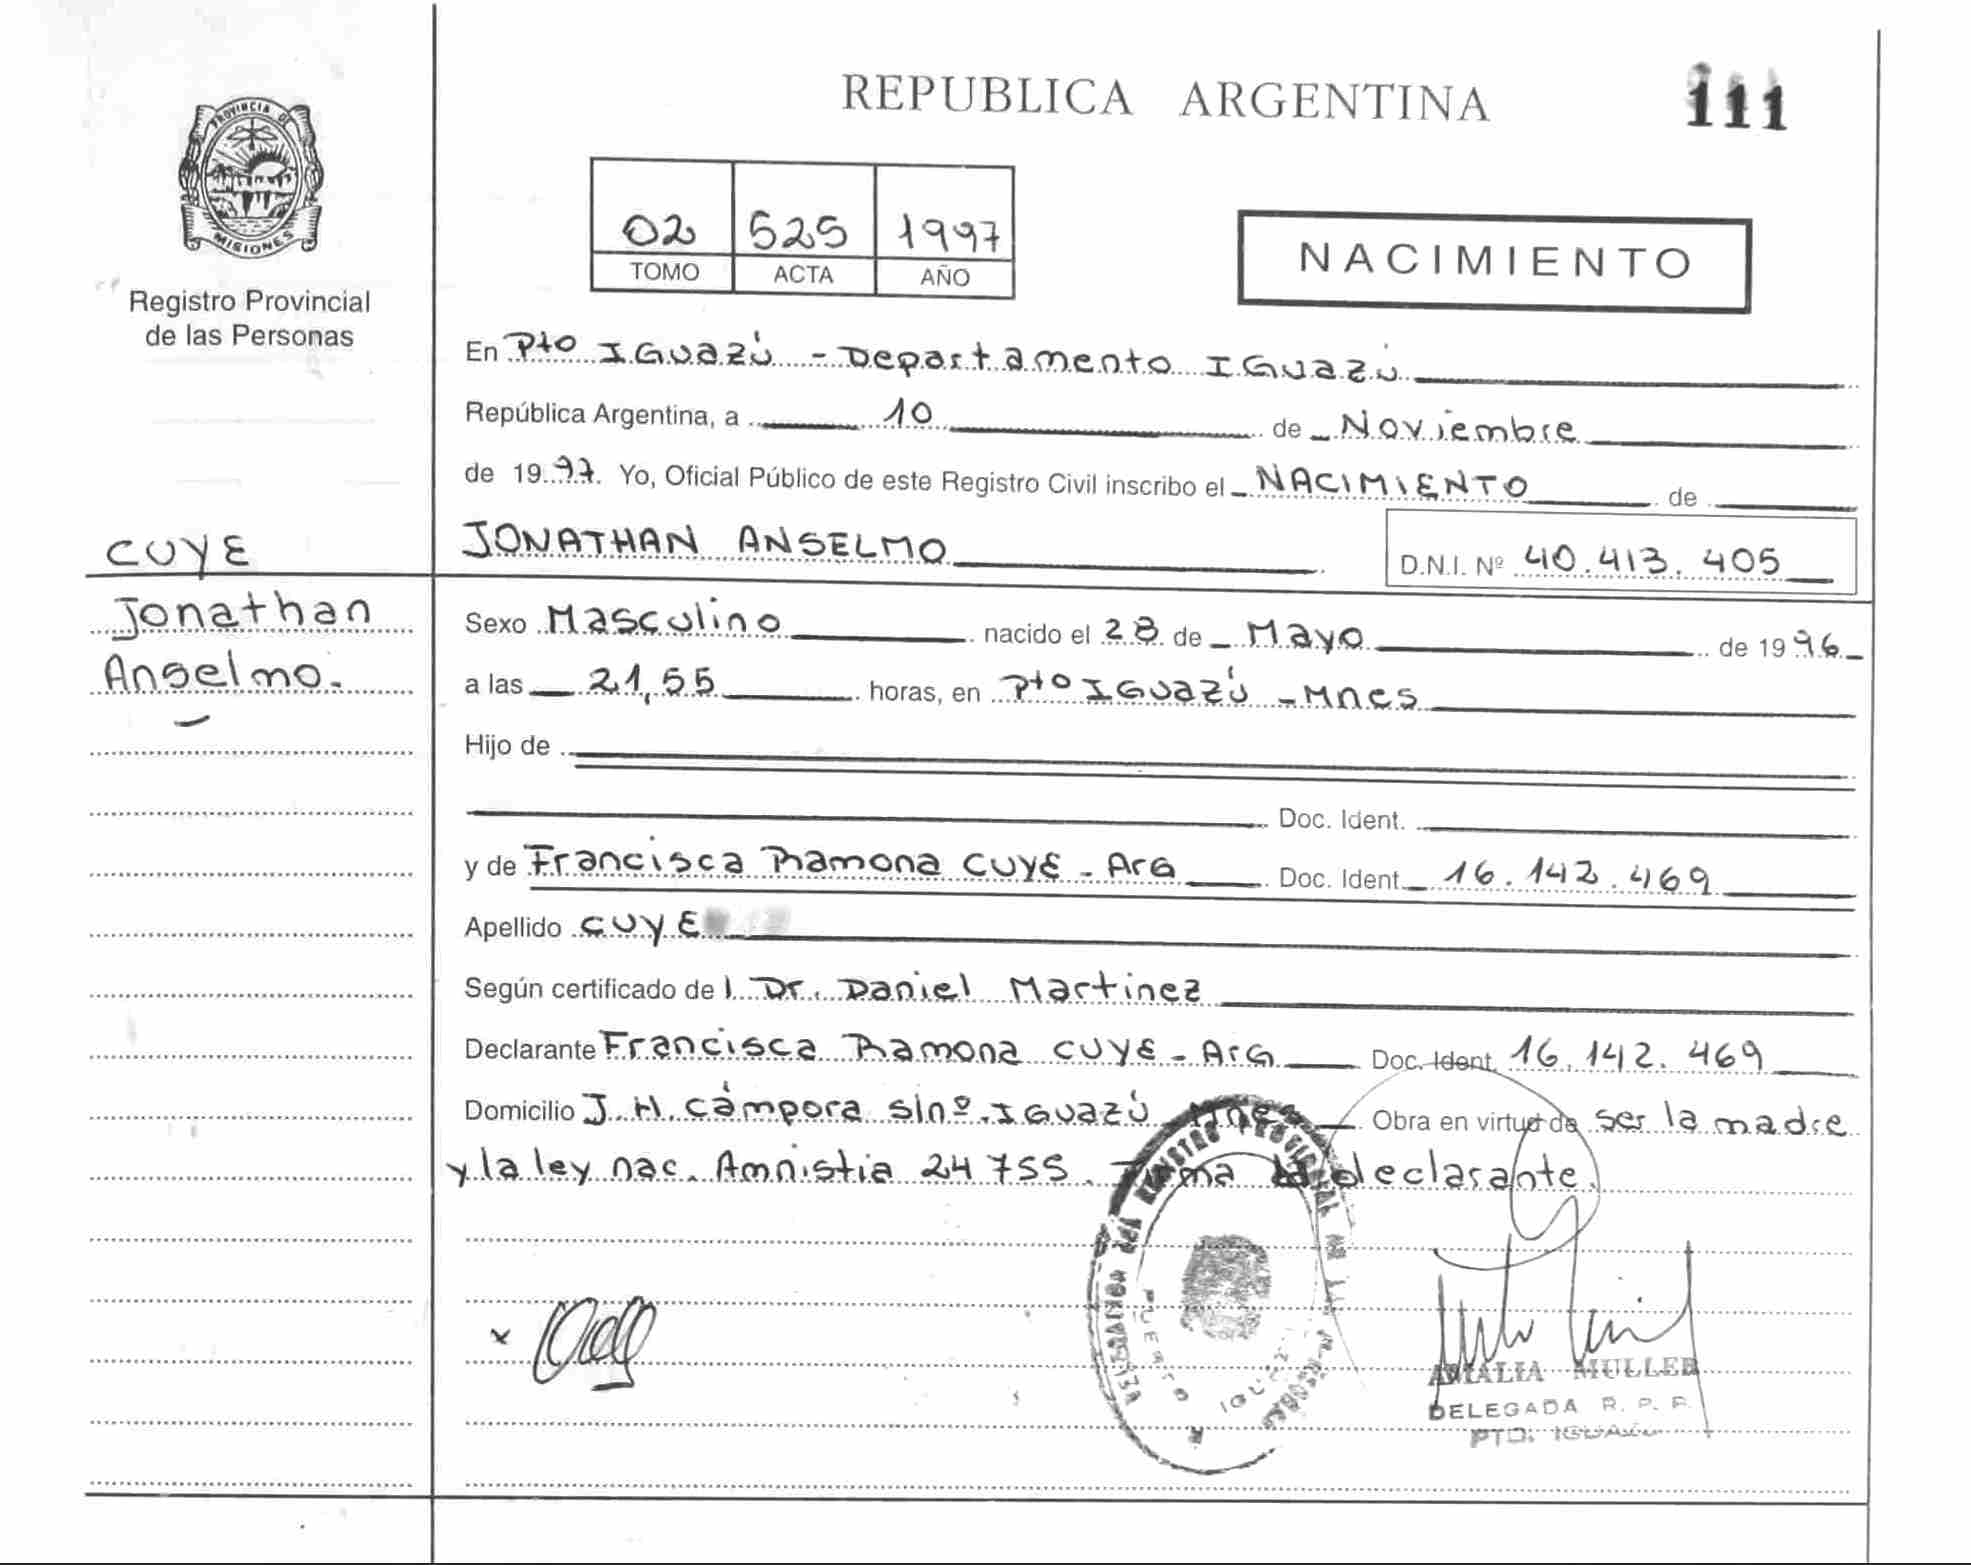 REPUBLICA ARGENTINA
111
PROVINCIA DE
MISIONES
Registro Provincial
de las Personas
02 525 1997
TOMO ACTA AÑO
NACIMIENTO
En Pto Iguazú - Departamento Iguazú
República Argentina, a 10 de Noviembre
de 1997. Yo, Oficial Público de este Registro Civil inscribo el NACIMIENTO de
JONATHAN ANSELMO
D.N.I. Nº 40.413.405
CUYE
Jonathan
Anselmo.
Sexo Masculino nacido el 28 de Mayo de 1996
a las 21,55 horas, en Pto Iguazú - Mnes
Hijo de
Doc. Ident.
y de Francisca Ramona CUYE - Arg Doc. Ident 16.142.469
Apellido CUYE
Según certificado de l Dr. Daniel Martinez
Declarante Francisca Ramona CUYE - Arg Doc. Ident. 16.142.469
Domicilio J. H. Cámpora s/nº. Iguazú Mnes Obra en virtud de ser la madre
y la ley nac. Amnistia 24755. Firma la declarante.
x
PUERTO IGUAZU
AMALIA MULLER
DELEGADA R. P. P.
PTO. IGUAZU